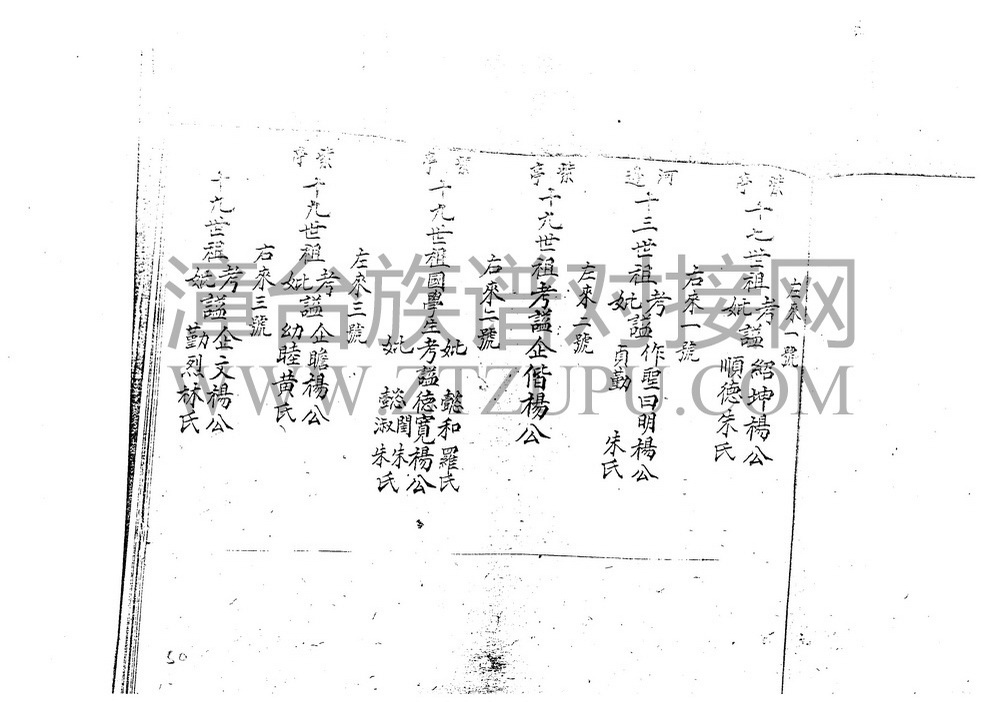 左來一號
紫亭
十七世祖考諡紹坤楊公
妣 順德朱氏
右來一號
河邊
十三世祖考諡作聖曰明楊公
妣 貞勤 朱氏
左來二號
紫亭
十九世祖考諡企偕楊公
右來二號
紫亭
妣 懿和羅氏
十九世祖國學生考諡德寬楊公
妣 懿閨朱
懿淑朱氏
左來三號
紫亭
十九世祖考諡企瞻楊公
妣 幼睦黃氏
右來三號
十九世祖考諡企文楊公
妣 勤烈林氏
50
漳台族谱对接网
WWW.ZTZUPU.COM